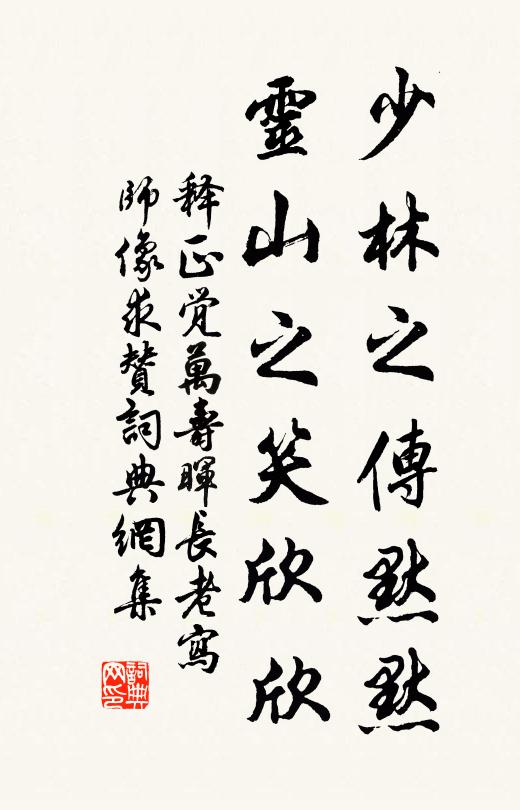 少林之傳默默
靈山之笑欣欣
释正觉萬壽暉長老寫
師像求贊詞典網集
詞典
网印